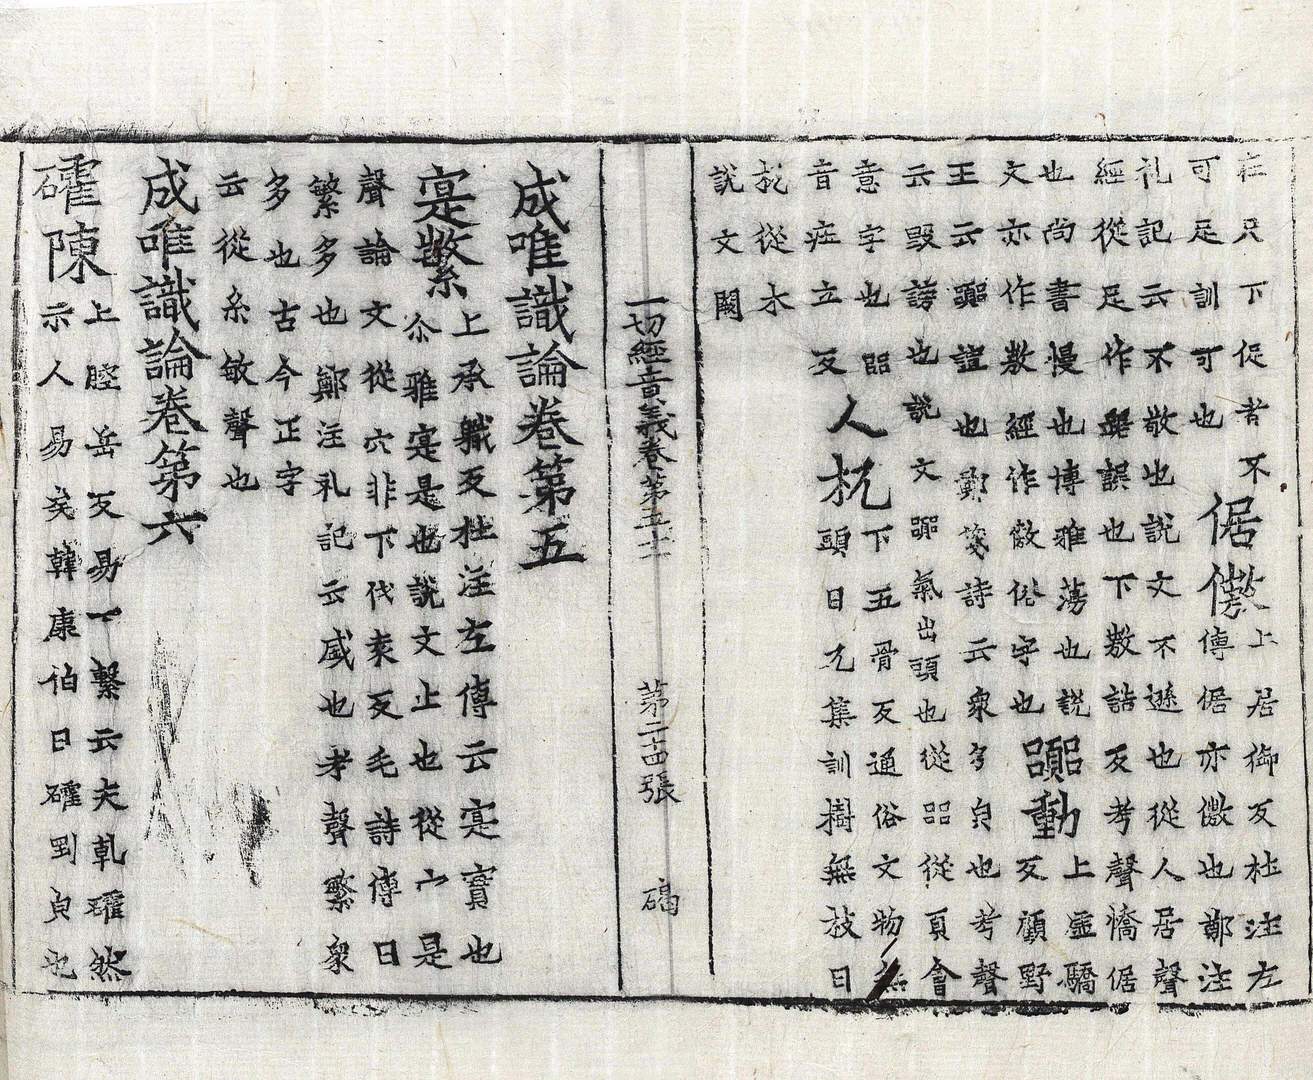 在足下從者不
可足訓可也
倨傲
上居御反杜注左
傳倨亦傲也鄭注
礼記云不敬也說文不遜也從人居聲
經從足作踞誤也下敖誥反考聲憍倨
也尚書慢也博雅蕩也說
文亦作敖經作慠俗字也
嚻動
上虛驕
反顧野
王云嚻諠也鄭箋詩云衆多皃也考聲
云毀謗也說文嚻氣出頭也從㗊從頁會
意字也㗊
音疰立反
人杌
下五骨反通俗文物無
頭曰兀集訓樹無枝曰
杌從木
說文闕
一切經音義卷第五十 第二十四張 碣
成唯識論卷第五
寔繁
上承軄反杜注左傳云寔實也
尒雅寔是也說文止也從宀是
聲論文從穴非下伐袁反毛詩傳曰
繁多也鄭注礼記云盛也考聲繁衆
多也古今正字
云從糸敏聲也
成唯識論卷第六
確陳
上腔岳反易下繫云夫乹確然
示人易矣韓康伯曰確到皃也